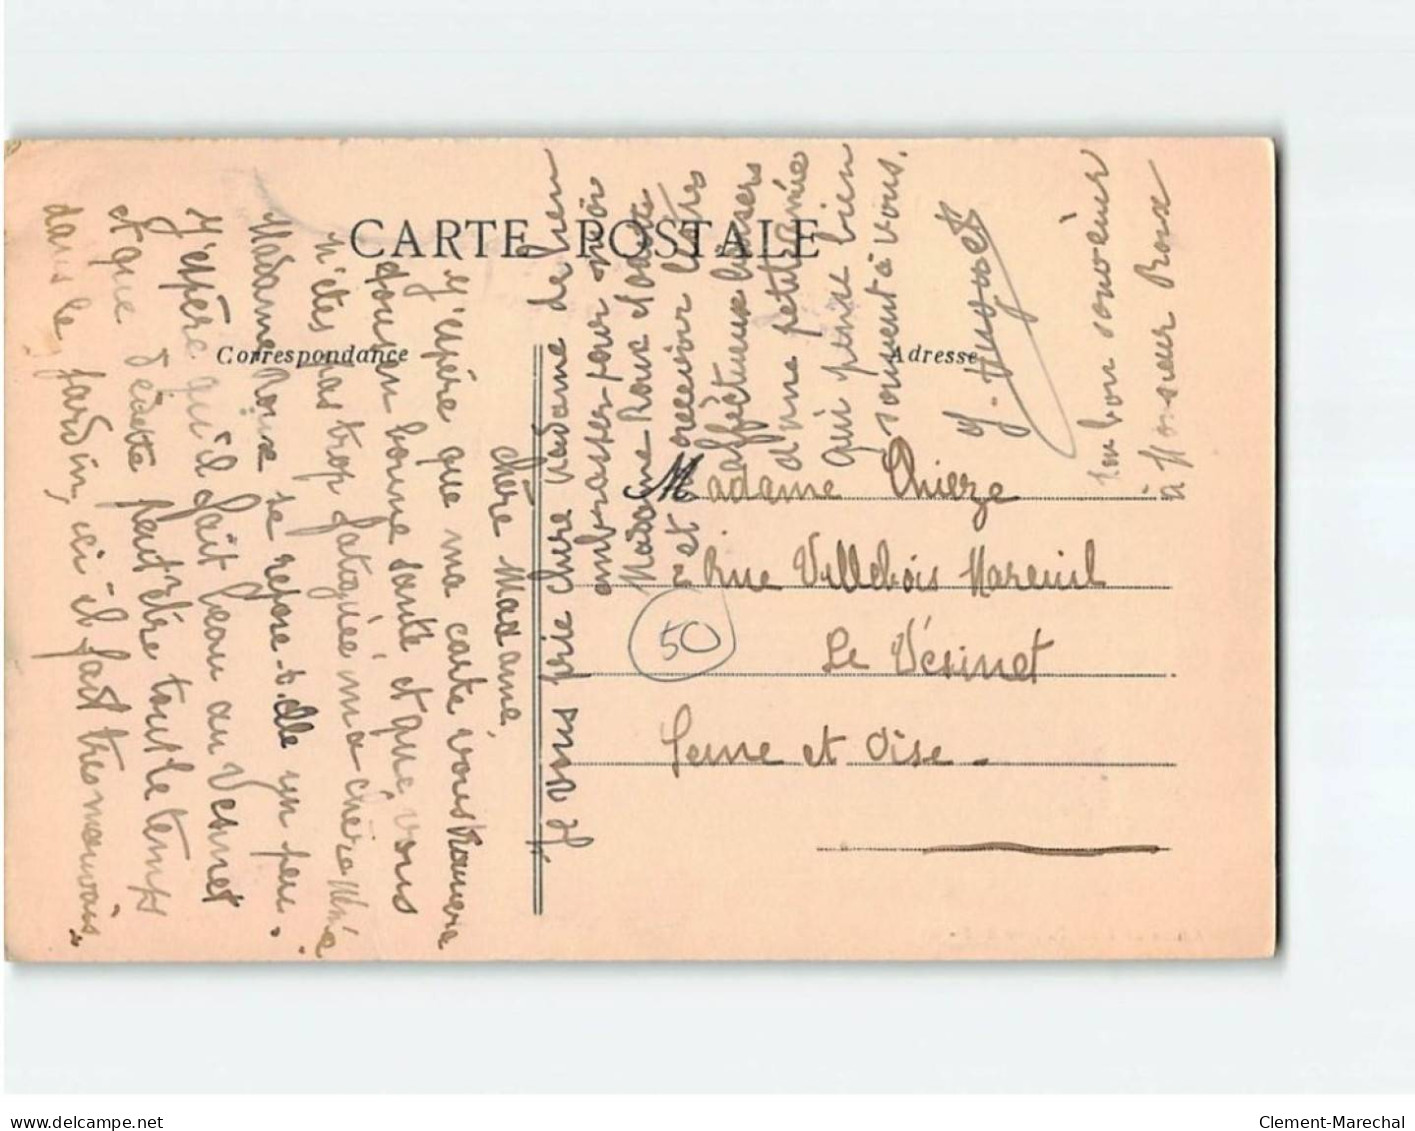 CARTE POSTALE
Correspondance
Adresse
Chère Madame,
J'espère que ma carte vous trouvera
tous en bonne santé et que vous
n'êtes pas trop fatiguée ma chère
Madame Roux se repose-t-elle un peu.
J'espère qu'il fait beau au Vésinet
et que Dédette peut être tout le temps
dans le jardin, ici il fait très mauvais.
Je vous prie chère Madame de bien
embrasser pour moi
Madame Roux Dédette
et recevoir les
affectueux baisers
d'une petite amie
qui pense bien
souvent à vous.
Y. Huguet
un bon souvenir
à Monsieur Roux
Madame Chieze
2 Rue Villebois Mareuil
Le Vésinet
Seine et Oise.
50
delcampe.net
Clement-Marechal